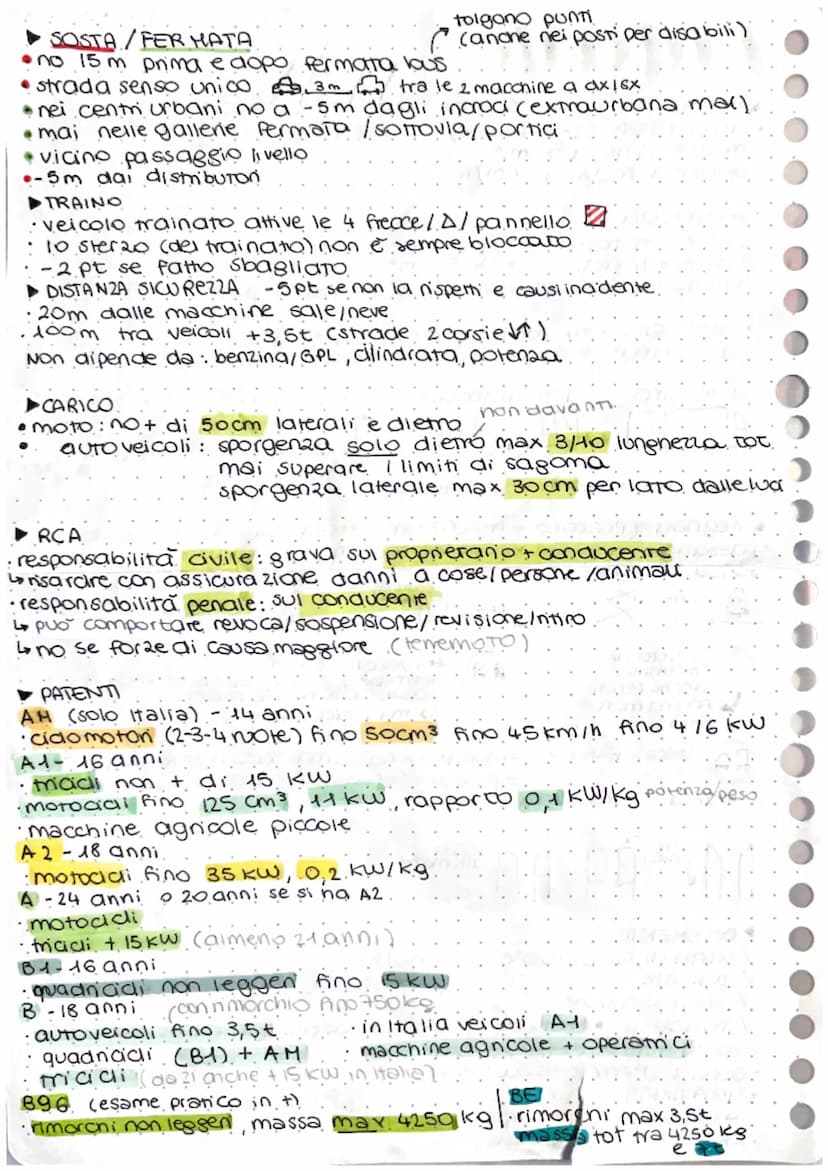 tolgono punti
▶ SOSTA / FERMATA (anche nei posti per disabili)
• no 15 m prima e dopo fermata bus
• strada senso unico 3m tra le 2 macchine a dx/sx
• nei centri urbani no a -5m dagli incroci (extraurbana mai)
• mai nelle gallerie fermata / sottovia / portici
• vicino passaggio livello
• -5m dai distributori
▶ TRAINO
· veicolo trainato attive le 4 frecce / Δ / pannello
· lo sterzo (del trainato) non è sempre bloccato
· -2 pt se fatto sbagliato
▶ DISTANZA SICUREZZA -5pt se non la rispetti e causi incidente
· 20m dalle macchine sale/neve
· 100m tra veicoli +3,5t (strade 2 corsie ↓↑)
Non dipende da: benzina/GPL, cilindrata, potenza
▶ CARICO
non davanti
• moto: no + di 50cm laterali e dietro
• autoveicoli: sporgenza solo dietro max 3/10 lunghezza tot
mai superare i limiti di sagoma
sporgenza laterale max 30 cm per lato dalle luci
▶ RCA
· responsabilità civile: grava sul proprietario + conducente
↳ risarcire con assicurazione danni a cose/persone/animali
· responsabilità penale: sul conducente
↳ può comportare revoca/sospensione/revisione/ritiro
↳ no se forze di causa maggiore (terremoto)
▶ PATENTI
AM (solo Italia) - 14 anni
· ciclomotori (2-3-4 ruote) fino 50cm³ fino 45 km/h fino 4/6 kW
A1 - 16 anni
· tricicli non + di 15 kW
· motocicli fino 125 cm³, 11 kW, rapporto 0,1 kW/kg potenza/peso
· macchine agricole piccole
A2 - 18 anni
· motocicli fino 35 kW, 0,2 kW/kg
A - 24 anni o 20 anni se si ha A2
· motocicli
· tricicli + 15 kW (almeno 21 anni)
B1 - 16 anni
· quadricicli non leggeri fino 15 kW
B - 18 anni (con rimorchio fino 750kg
· autoveicoli fino 3,5t · in Italia veicoli A1
· quadricicli (B1) + AM · macchine agricole + operatrici
tricicli (da 21 anche +15 kW in Italia)
B96 (esame pratico in +)
· rimorchi non leggeri, massa max 4250 kg
BE
· rimorchi max 3,5t
massa tot tra 4250 kg
e 7t